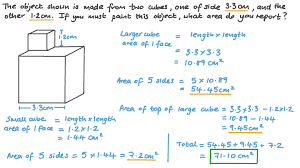 The object shown is made from two cubes, one of side 3.3cm, and the
other 1.2cm. If you must paint this object, what area do you report?
1.2cm
3.3cm
Larger cube = length x length
area of 1 face
= 3.3 x 3.3
= 10.89 cm²
Area of 5 sides = 5 x 10.89
= 54.45cm²
Area of top of large cube = 3.3 x 3.3 - 1.2 x 1.2
= 10.89 - 1.44
= 9.45cm²
Small cube = length x length
area of 1 face = 1.2 x 1.2
= 1.44 cm²
Area of 5 sides = 5 x 1.44 = 7.2cm²
Total = 54.45 + 9.45 + 7.2
= 71.10cm²